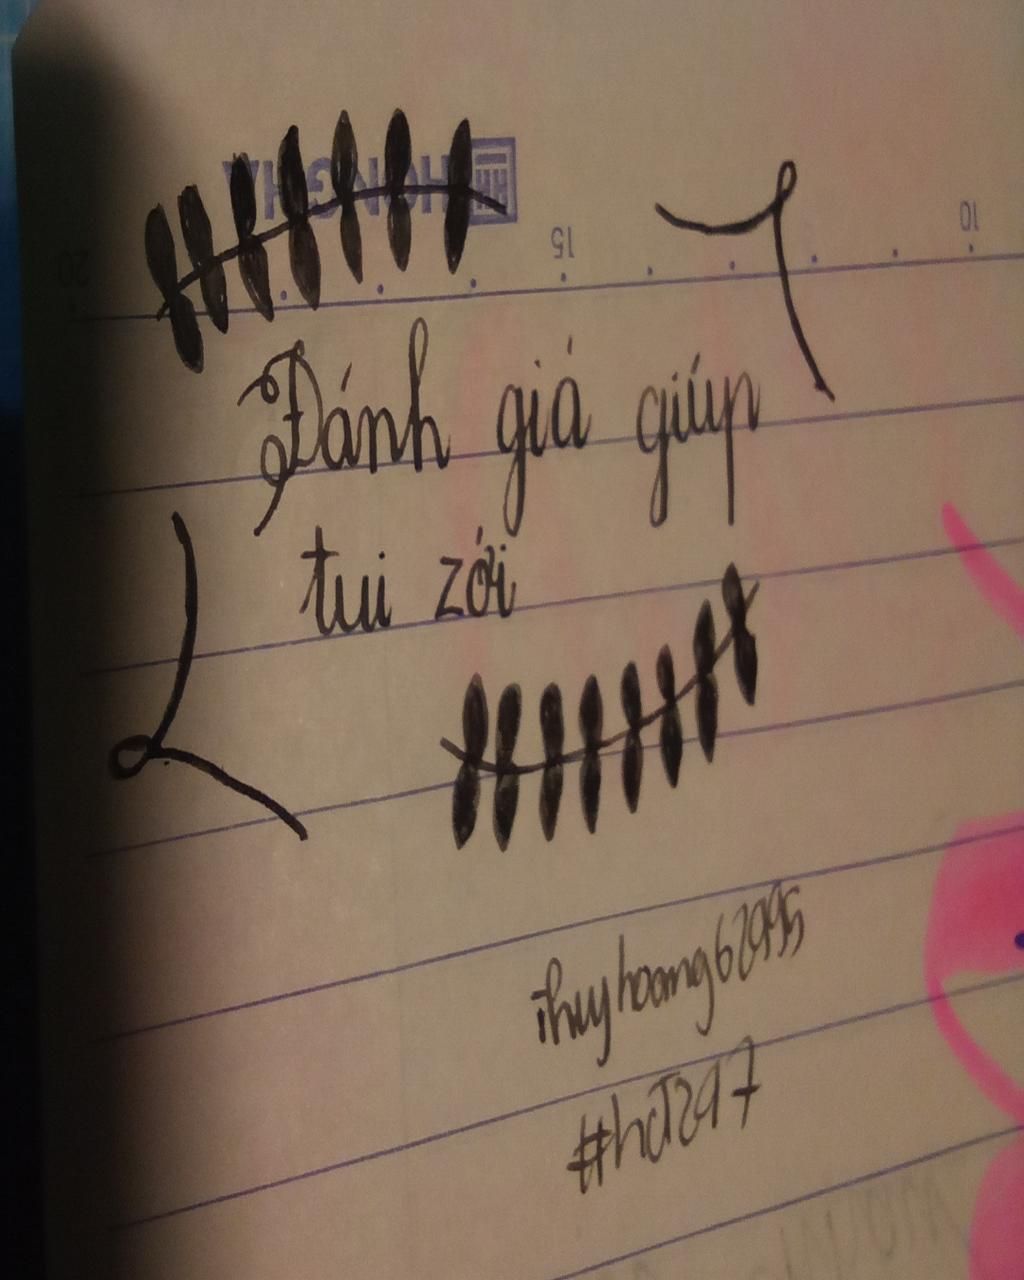 HONG HA
20 15 10
Đánh giá giúp
tui zới
thuyhoang62995
#hct297